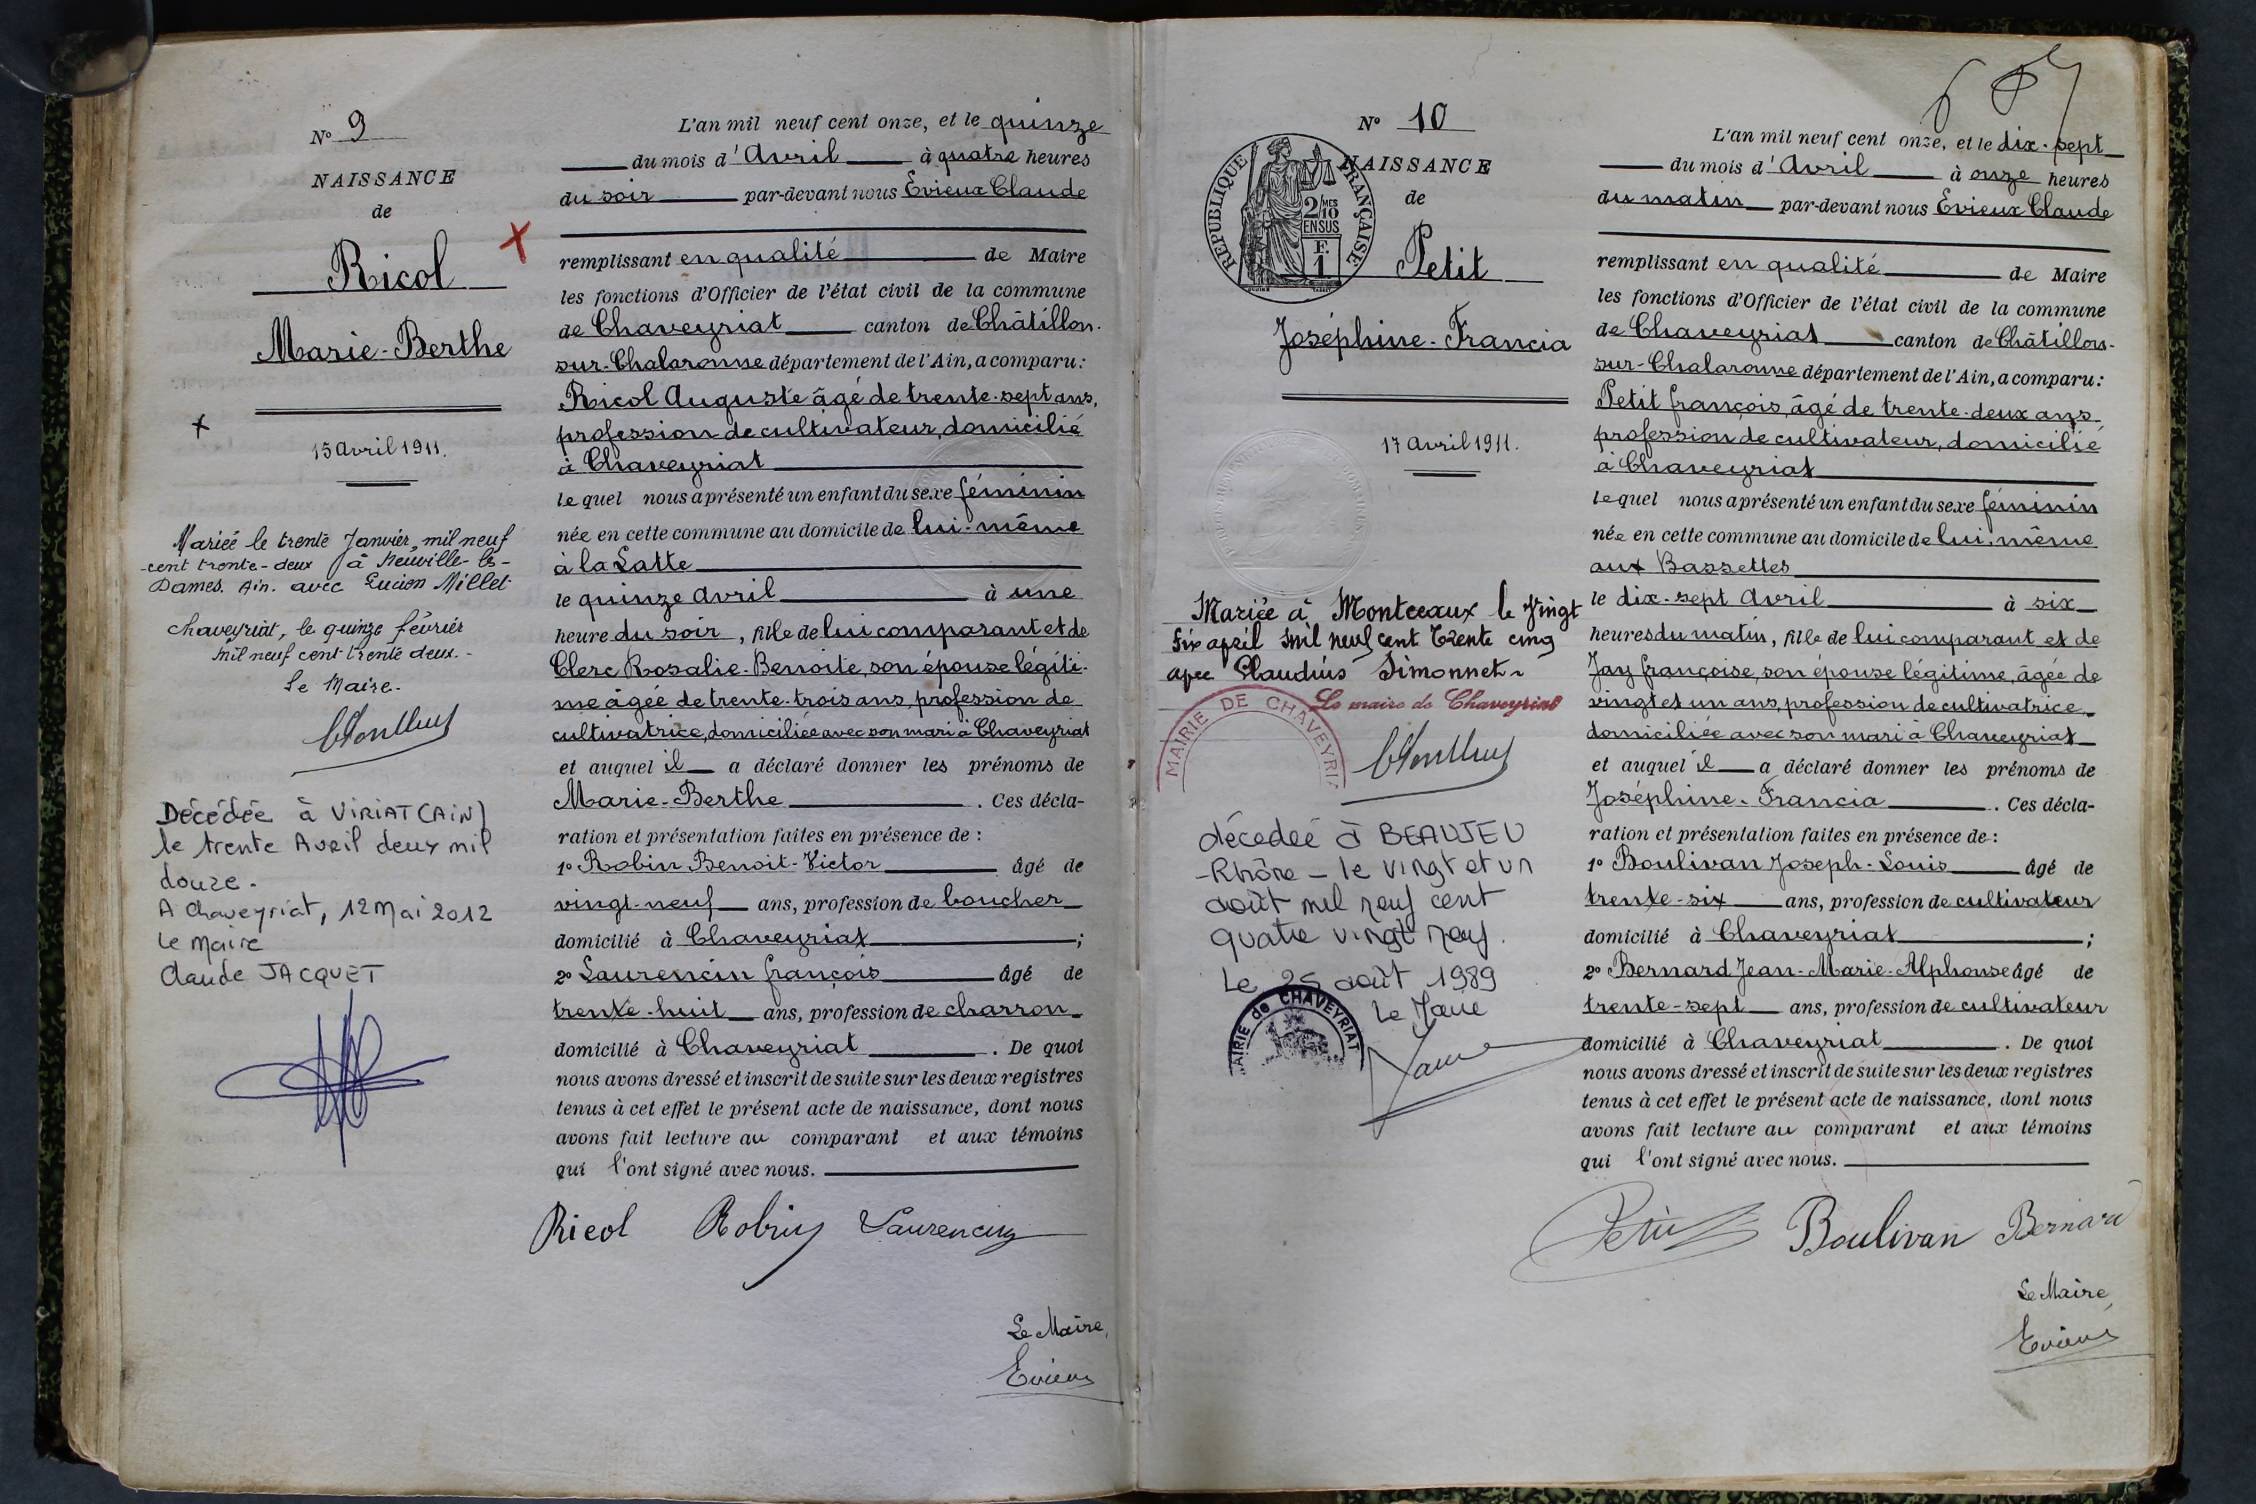 N° 9
NAISSANCE
de
Ricol
Marie-Berthe
15 Avril 1911.
Mariée le trente Janvier mil neuf
-cent trente-deux à Neuville-les-
Dames. Ain. avec Lucien Millet
Chaveyriat, le quinze février
mil neuf cent trente deux.-
Le Maire.
Décédée à VIRIAT (AIN)
le trente Avril deux mil
douze.
A Chaveyriat, 12 Mai 2012
Le Maire
Claude JACQUET
L'an mil neuf cent onze, et le quinze
du mois d'Avril à quatre heures
du soir par-devant nous Evieux Claude
remplissant en qualité de Maire
les fonctions d'Officier de l'état civil de la commune
de Chaveyriat canton de Châtillon-
sur-Chalaronne département de l'Ain, a comparu:
Ricol Auguste âgé de trente-sept ans,
profession de cultivateur, domicilié
à Chaveyriat
lequel nous a présenté un enfant du sexe féminin
née en cette commune au domicile de lui-même
à la Latte
le quinze Avril à une
heure du soir, fille de lui comparant et de
Clerc Rosalie-Benoite, son épouse légiti-
me âgée de trente-trois ans, profession de
cultivatrice, domiciliée avec son mari à Chaveyriat
et auquel il a déclaré donner les prénoms de
Marie-Berthe . Ces décla-
ration et présentation faites en présence de :
1° Robin Benoit-Victor âgé de
vingt-neuf ans, profession de boucher
domicilié à Chaveyriat ;
2° Laurencin françois âgé de
trente-huit ans, profession de charron
domicilié à Chaveyriat . De quoi
nous avons dressé et inscrit de suite sur les deux registres
tenus à cet effet le présent acte de naissance, dont nous
avons fait lecture au comparant et aux témoins
qui l'ont signé avec nous.
Ricol Robin Laurencin
Le Maire,
Evieux
N° 10
NAISSANCE
de
REPUBLIQUE FRANÇAISE
2/10 MES
EN SUS
F
1
Petit
Joséphine-Francia
17 Avril 1911.
Mariée à Montceaux le vingt
six april mil neuf cent trente cinq
avec Claudius Simonnet
Le maire de Chaveyriat
MAIRIE DE CHAVEYRIA
décédée à BEAUJEU
-Rhône- le vingt et un
août mil neuf cent
quatre vingt neuf.
Le 25 août 1989
Le Maire
MAIRIE de CHAVEYRIAT
L'an mil neuf cent onze, et le dix-sept
du mois d'Avril à onze heures
du matin par-devant nous Evieux Claude
remplissant en qualité de Maire
les fonctions d'Officier de l'état civil de la commune
de Chaveyriat canton de Châtillon-
sur-Chalaronne département de l'Ain, a comparu:
Petit françois, âgé de trente-deux ans
profession de cultivateur, domicilié
à Chaveyriat
lequel nous a présenté un enfant du sexe féminin
née en cette commune au domicile de lui-même
aux Bassettes
le dix-sept Avril à six
heures du matin, fille de lui comparant et de
Jay françoise, son épouse légitime, âgée de
vingt et un ans, profession de cultivatrice
domiciliée avec son mari à Chaveyriat
et auquel il a déclaré donner les prénoms de
Joséphine-Francia . Ces décla-
ration et présentation faites en présence de :
1° Boulivan Joseph-Louis âgé de
trente-six ans, profession de cultivateur
domicilié à Chaveyriat ;
2° Bernard Jean-Marie-Alphonse âgé de
trente-sept ans, profession de cultivateur
domicilié à Chaveyriat . De quoi
nous avons dressé et inscrit de suite sur les deux registres
tenus à cet effet le présent acte de naissance, dont nous
avons fait lecture au comparant et aux témoins
qui l'ont signé avec nous.
Petit Boulivan Bernard
Le Maire,
Evieux